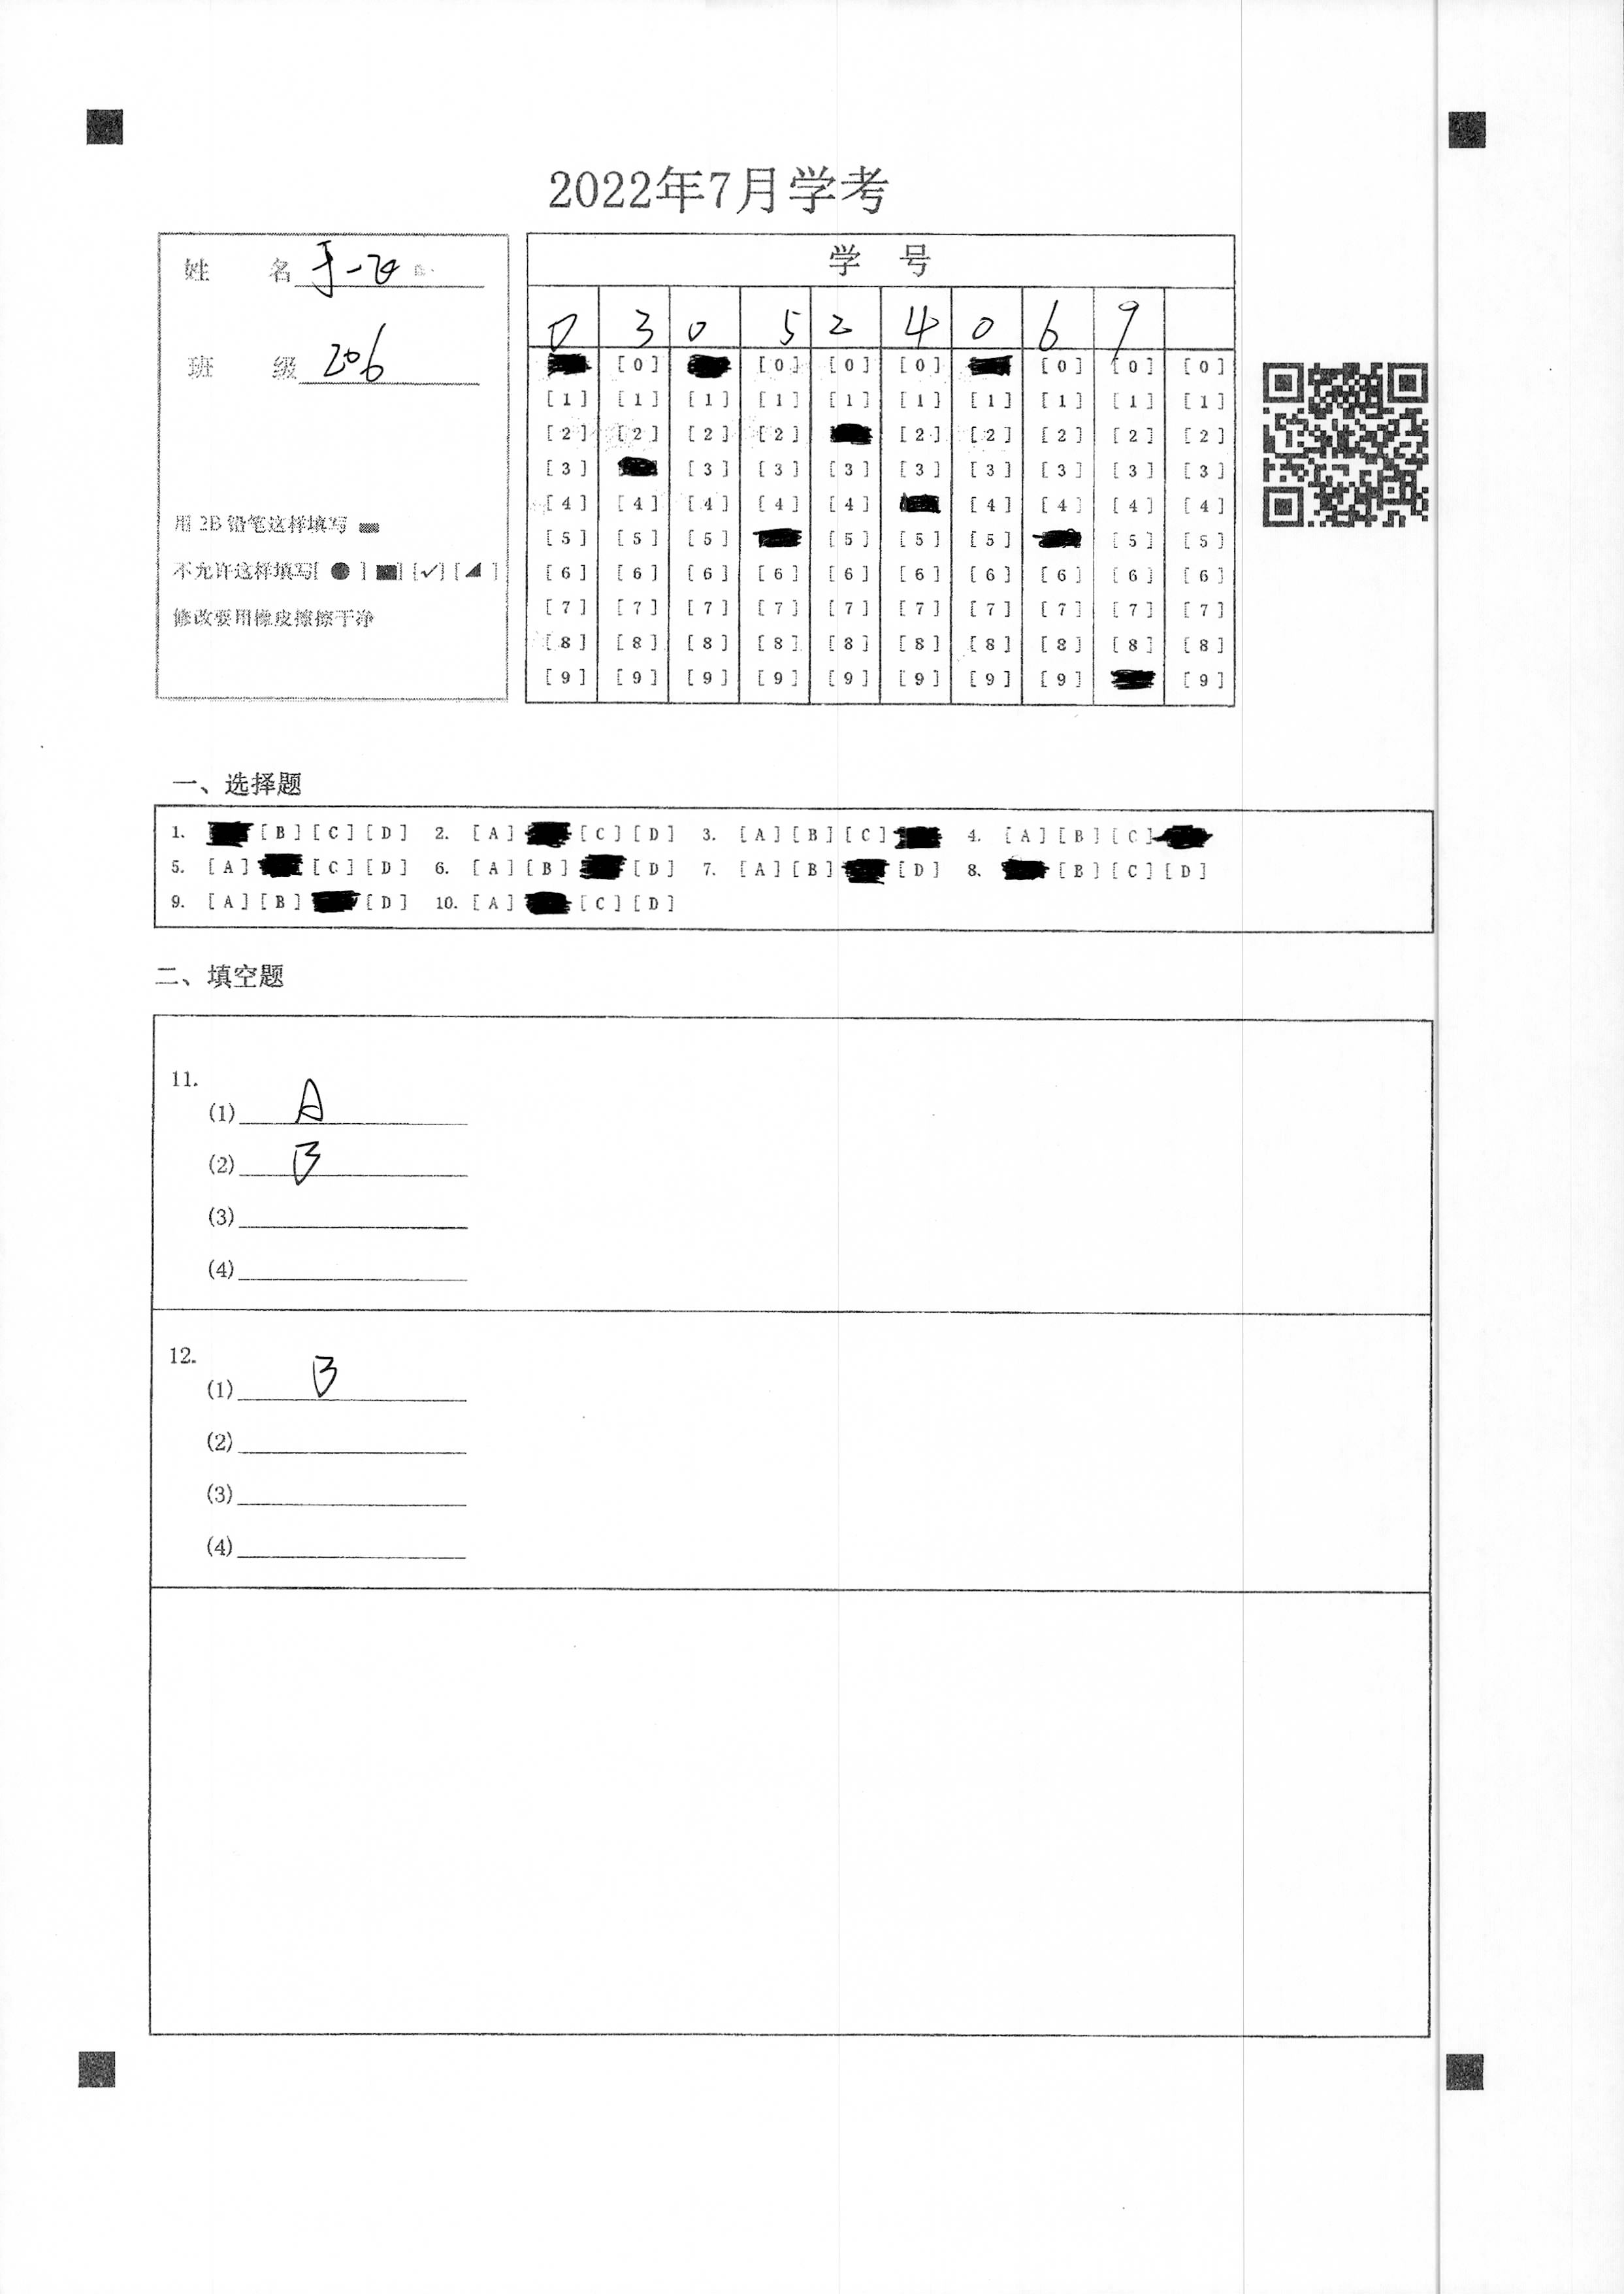 2022年7月学考
姓 名
班 级 206
用 2B 铅笔这样填写
不允许这样填写[ ● ] [■] [✓] [◢ ]
修改要用橡皮擦擦干净
学 号
0 3 0 5 2 4 0 6 9
[0] [0] [0] [0] [0] [0] [0]
[1] [1] [1] [1] [1] [1] [1] [1] [1] [1]
[2] [2] [2] [2] [2] [2] [2] [2] [2]
[3] [3] [3] [3] [3] [3] [3] [3] [3]
[4] [4] [4] [4] [4] [4] [4] [4] [4]
[5] [5] [5] [5] [5] [5] [5] [5]
[6] [6] [6] [6] [6] [6] [6] [6] [6] [6]
[7] [7] [7] [7] [7] [7] [7] [7] [7] [7]
[8] [8] [8] [8] [8] [8] [8] [8] [8] [8]
[9] [9] [9] [9] [9] [9] [9] [9] [9]
一、选择题
1. [B] [C] [D] 2. [A] [C] [D] 3. [A] [B] [C] 4. [A] [B] [C]
5. [A] [C] [D] 6. [A] [B] [D] 7. [A] [B] [D] 8. [B] [C] [D]
9. [A] [B] [D] 10. [A] [C] [D]
二、填空题
11.
(1) A
(2) B
(3)
(4)
12.
(1) B
(2)
(3)
(4)